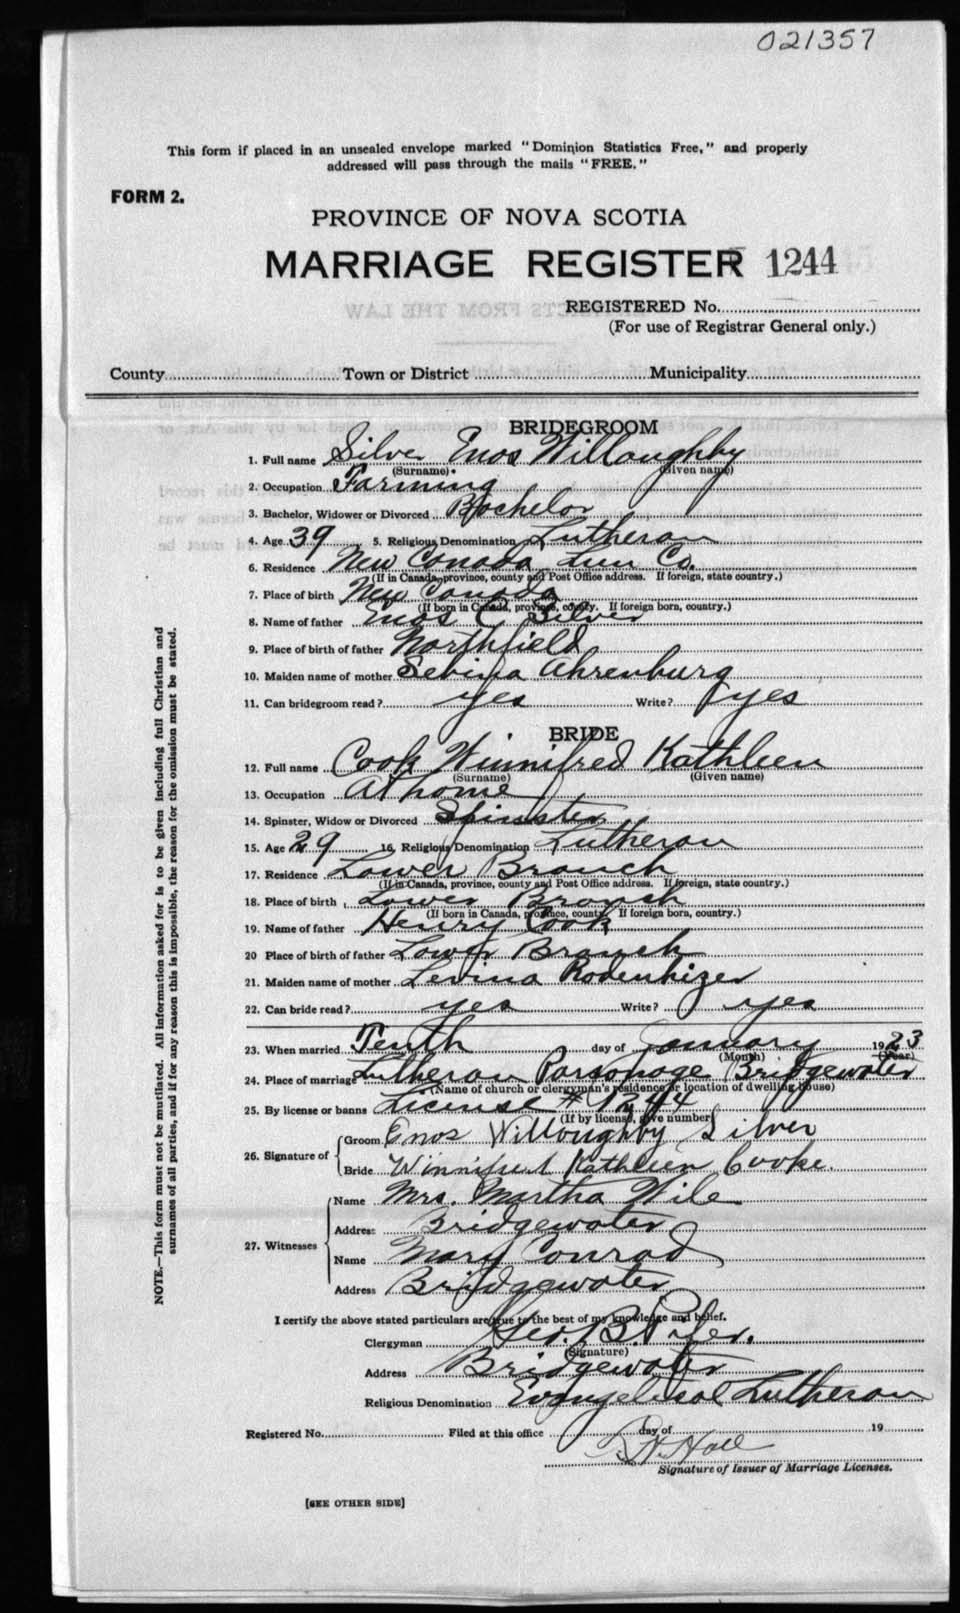 021357
This form if placed in an unsealed envelope marked "Dominion Statistics Free," and properly
addressed will pass through the mails "FREE."
FORM 2.
PROVINCE OF NOVA SCOTIA
MARRIAGE REGISTER 1244
REGISTERED No.
(For use of Registrar General only.)
County Town or District Municipality
BRIDEGROOM
1. Full name Silver Enos Willoughby
(Surname) (Given name)
2. Occupation Farming
3. Bachelor, Widower or Divorced Bachelor
4. Age 39 5. Religious Denomination Lutheran
6. Residence New Canada Lun Co.
(If in Canada, province, county and Post Office address. If foreign, state country.)
7. Place of birth New Canada
(If born in Canada, province, county. If foreign born, country.)
8. Name of father Enos C Silver
9. Place of birth of father Northfield
10. Maiden name of mother Sebina Ahrenburg
11. Can bridegroom read? yes Write? yes
BRIDE
12. Full name Cook Winnifred Kathleen
(Surname) (Given name)
13. Occupation At home
14. Spinster, Widow or Divorced Spinster
15. Age 29 16. Religious Denomination Lutheran
17. Residence Lower Branch
(If in Canada, province, county and Post Office address. If foreign, state country.)
18. Place of birth Lower Branch
(If born in Canada, province, county. If foreign born, country.)
19. Name of father Henry Cook
20 Place of birth of father Lower Branch
21. Maiden name of mother Levina Rodenhizer
22. Can bride read? yes Write? yes
23. When married Tenth day of January 1923
(Month) (Year)
24. Place of marriage Lutheran Parsonage Bridgewater
(Name of church or clergyman's residence or location of dwelling house)
25. By license or banns License # 1244
(If by license, give number)
26. Signature of Groom Enos Willoughby Silver
Bride Winnifred Kathleen Cooke.
27. Witnesses Name Mrs. Martha Wile
Address Bridgewater
Name Mary Conrad
Address Bridgewater
I certify the above stated particulars are true to the best of my knowledge and belief.
Clergyman Geo. B. Pifer.
(Signature)
Address Bridgewater
Religious Denomination Evangelical Lutheran
Registered No. Filed at this office day of 19
Hall
Signature of Issuer of Marriage Licenses.
[SEE OTHER SIDE]
NOTE.—This form must not be mutilated. All information asked for is to be given including full Christian and
surnames of all parties, and if for any reason this is impossible, the reason for the omission must be stated.